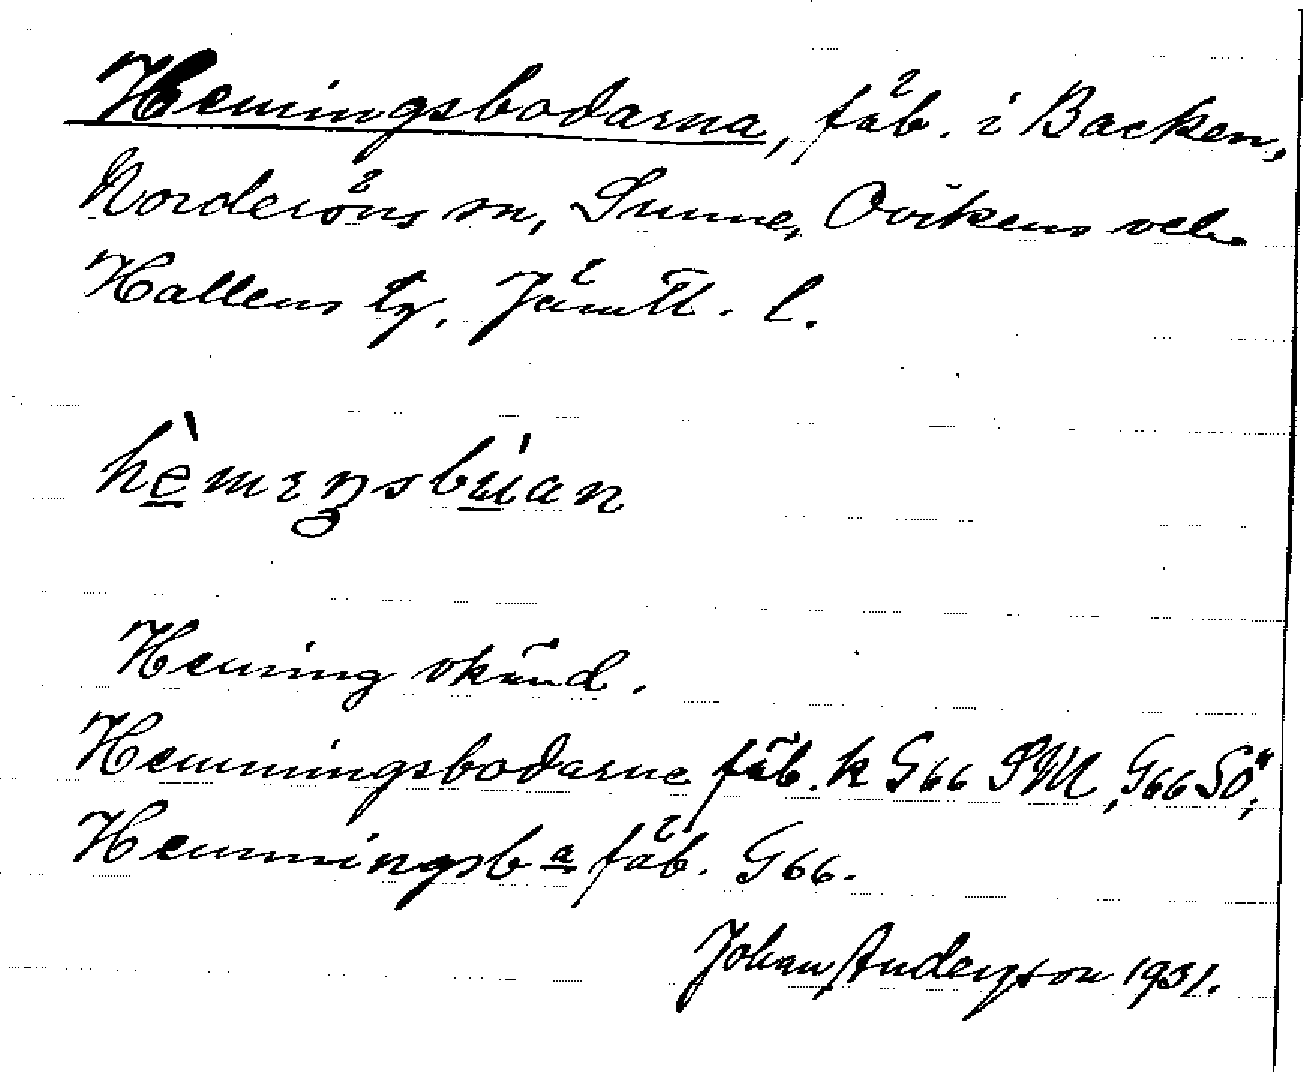 Hemingsbodarna, fäb. i Backen,
Norderöns sn, Sunne, Ovikens och
Hallens tg, Jämtl. l.
hèmıŋsbúan
Heming okänd.
Hemmingsbodarne fäb. k G66 SM, G66 SÖ,
Hemmingsb a fäb. G66.
Johan Anderzson 1931.